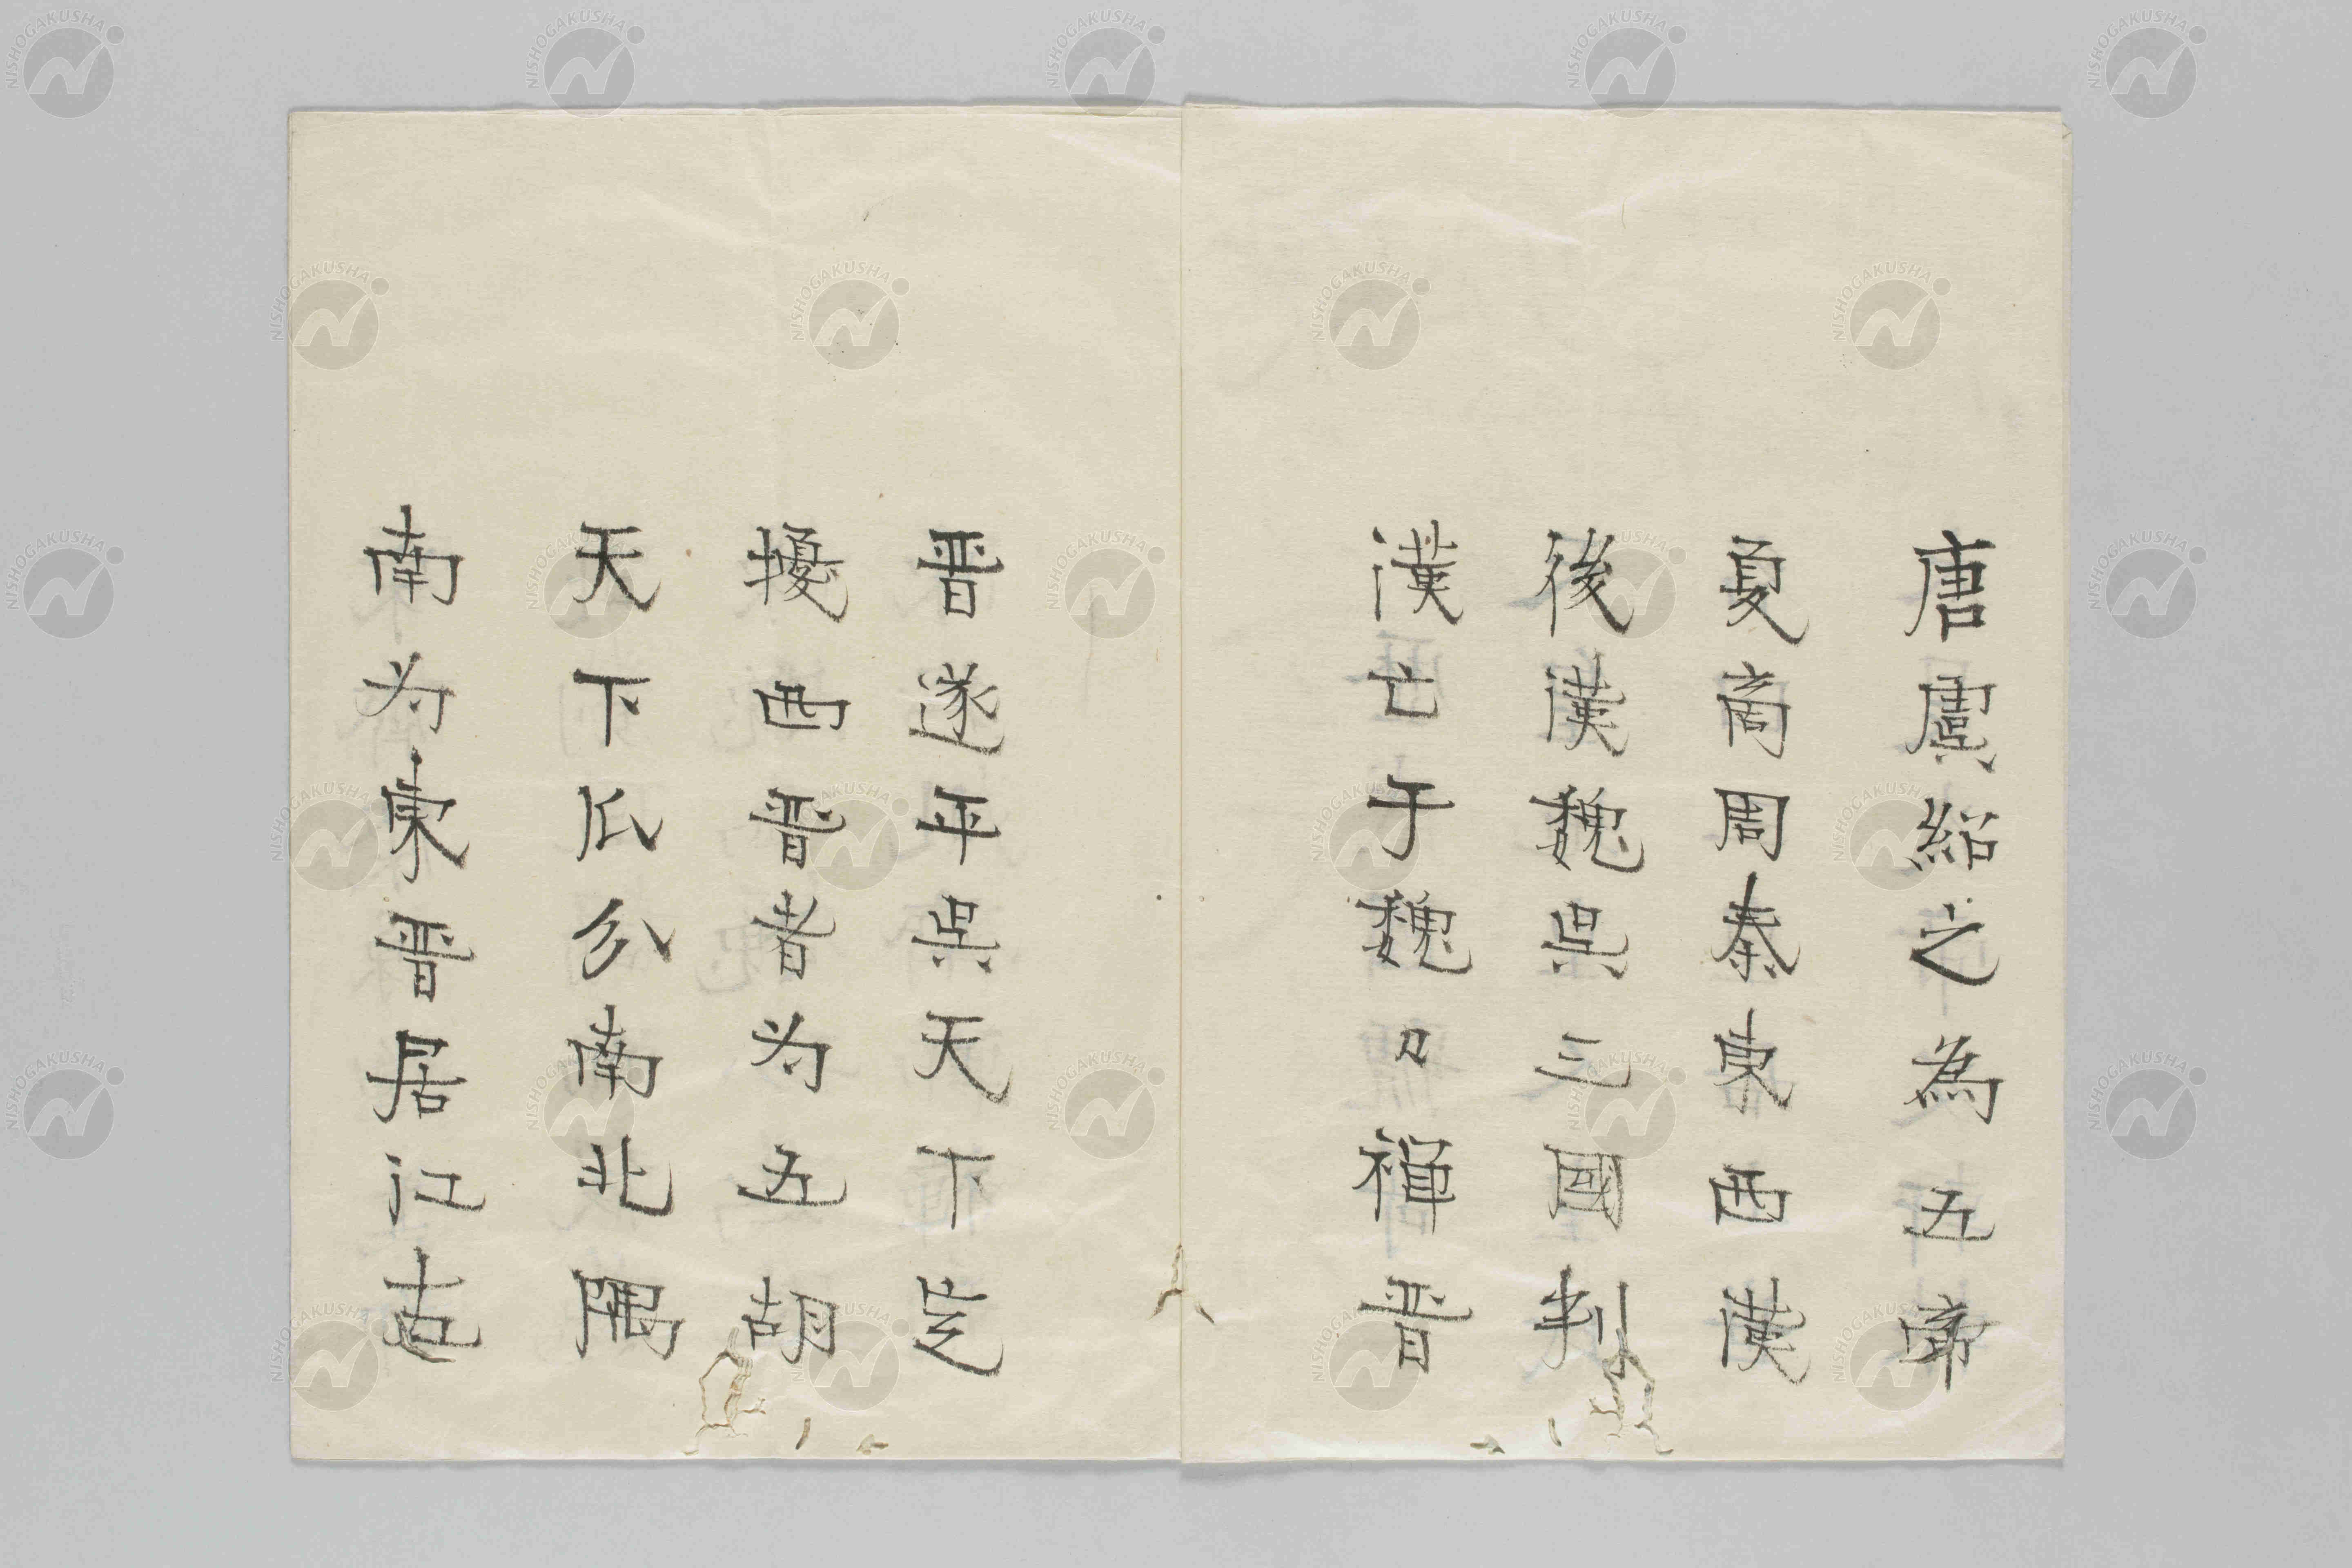 唐虞紹之為五帝
夏商周秦東西漢
後漢魏呉三國判
漢亡于魏々禅晋
晋遂平呉天下定
擾西晋者为五胡
天下瓜分南北隅
南为東晋居江
NISHOGAKUSHA